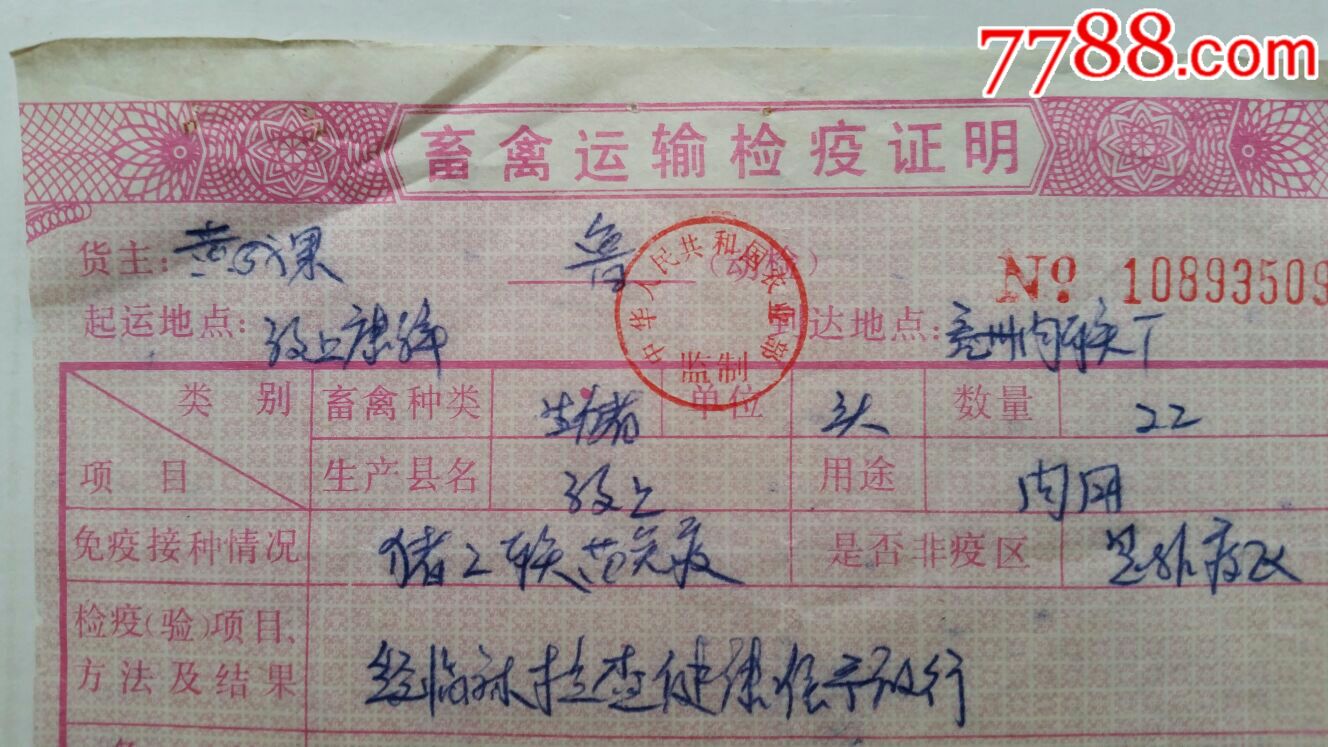 7788.com
畜禽运输检疫证明
货主: 黄成果 鲁 (动检) № 10893509
起运地点: 汶上康驿 到达地点: 兖州肉联厂
中华人民共和国农业部
监制
类别 畜禽种类 生猪 单位 头 数量 22
项目 生产县名 汶上 用途 肉用
免疫接种情况 猪2联苗免疫 是否非疫区 是非疫区
检疫(验)项目、
方法及结果 经临床检查健康准予放行